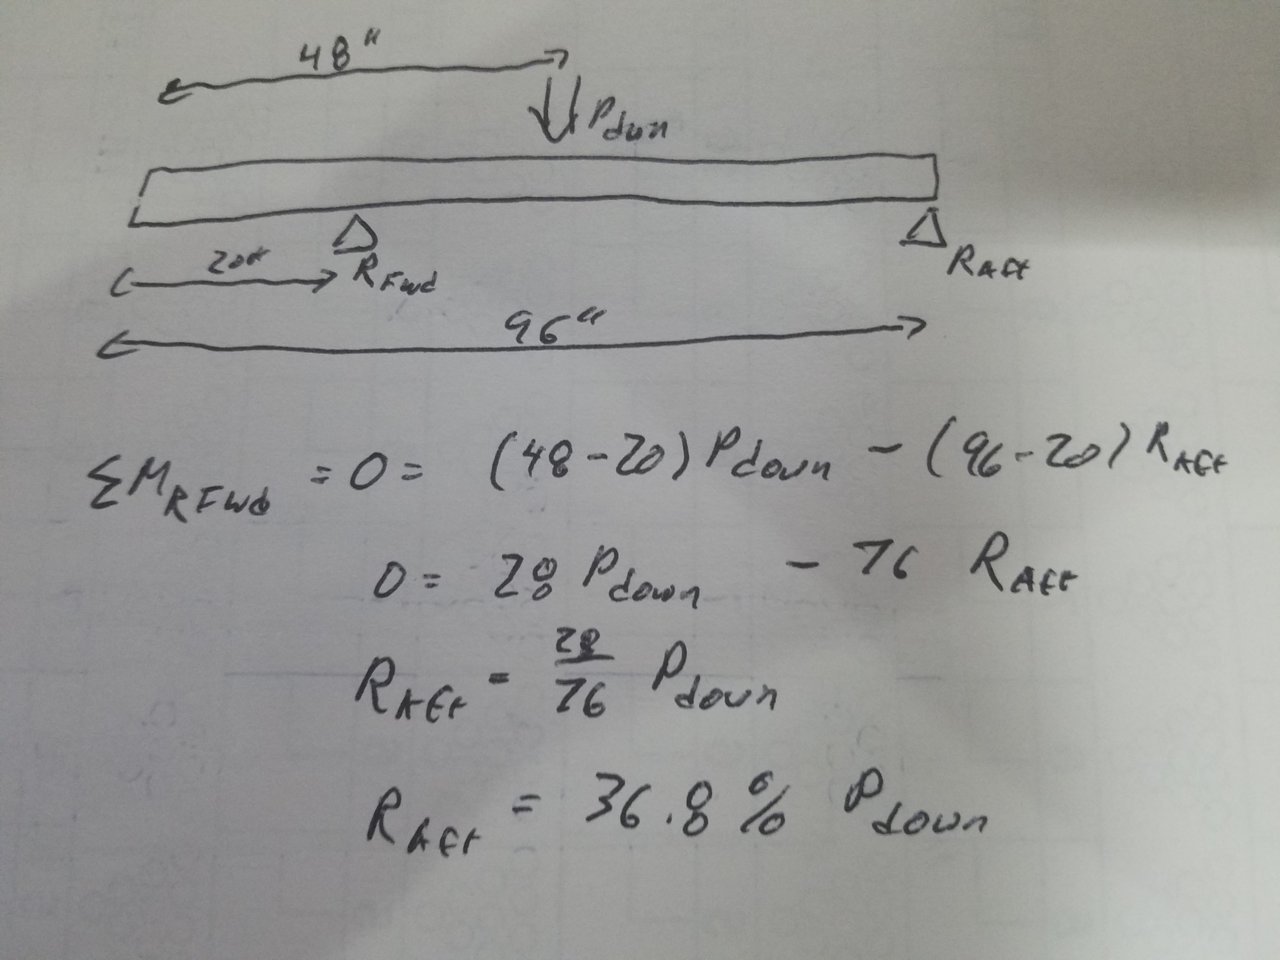 48"
Pdown
20"
RFwd
RAft
96"
ΣMRFwd = 0 = (48-20) Pdown - (96-20) RAft
0 = 28 Pdown - 76 RAft
RAft = 28/76 Pdown
RAft = 36.8% Pdown